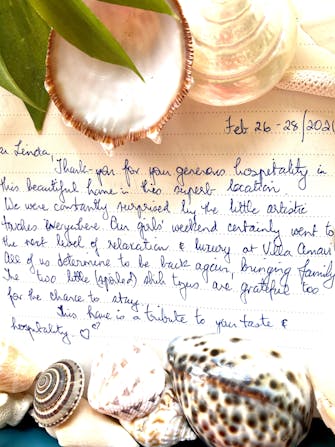 Feb 26-28/202
Linda,
Thank-you for your generous hospitality in
this beautiful home in this superb location.
We were constantly surprised by the little artistic
touches everywhere. Our girls' weekend certainly went to
the next label of relaxation & luxury at Villa
All of us determine to be back again, bringing family.
The two little (spoiled) shih tzus are grateful too
for the chance to stay.
This home is a tribute to your taste &
hospitality.